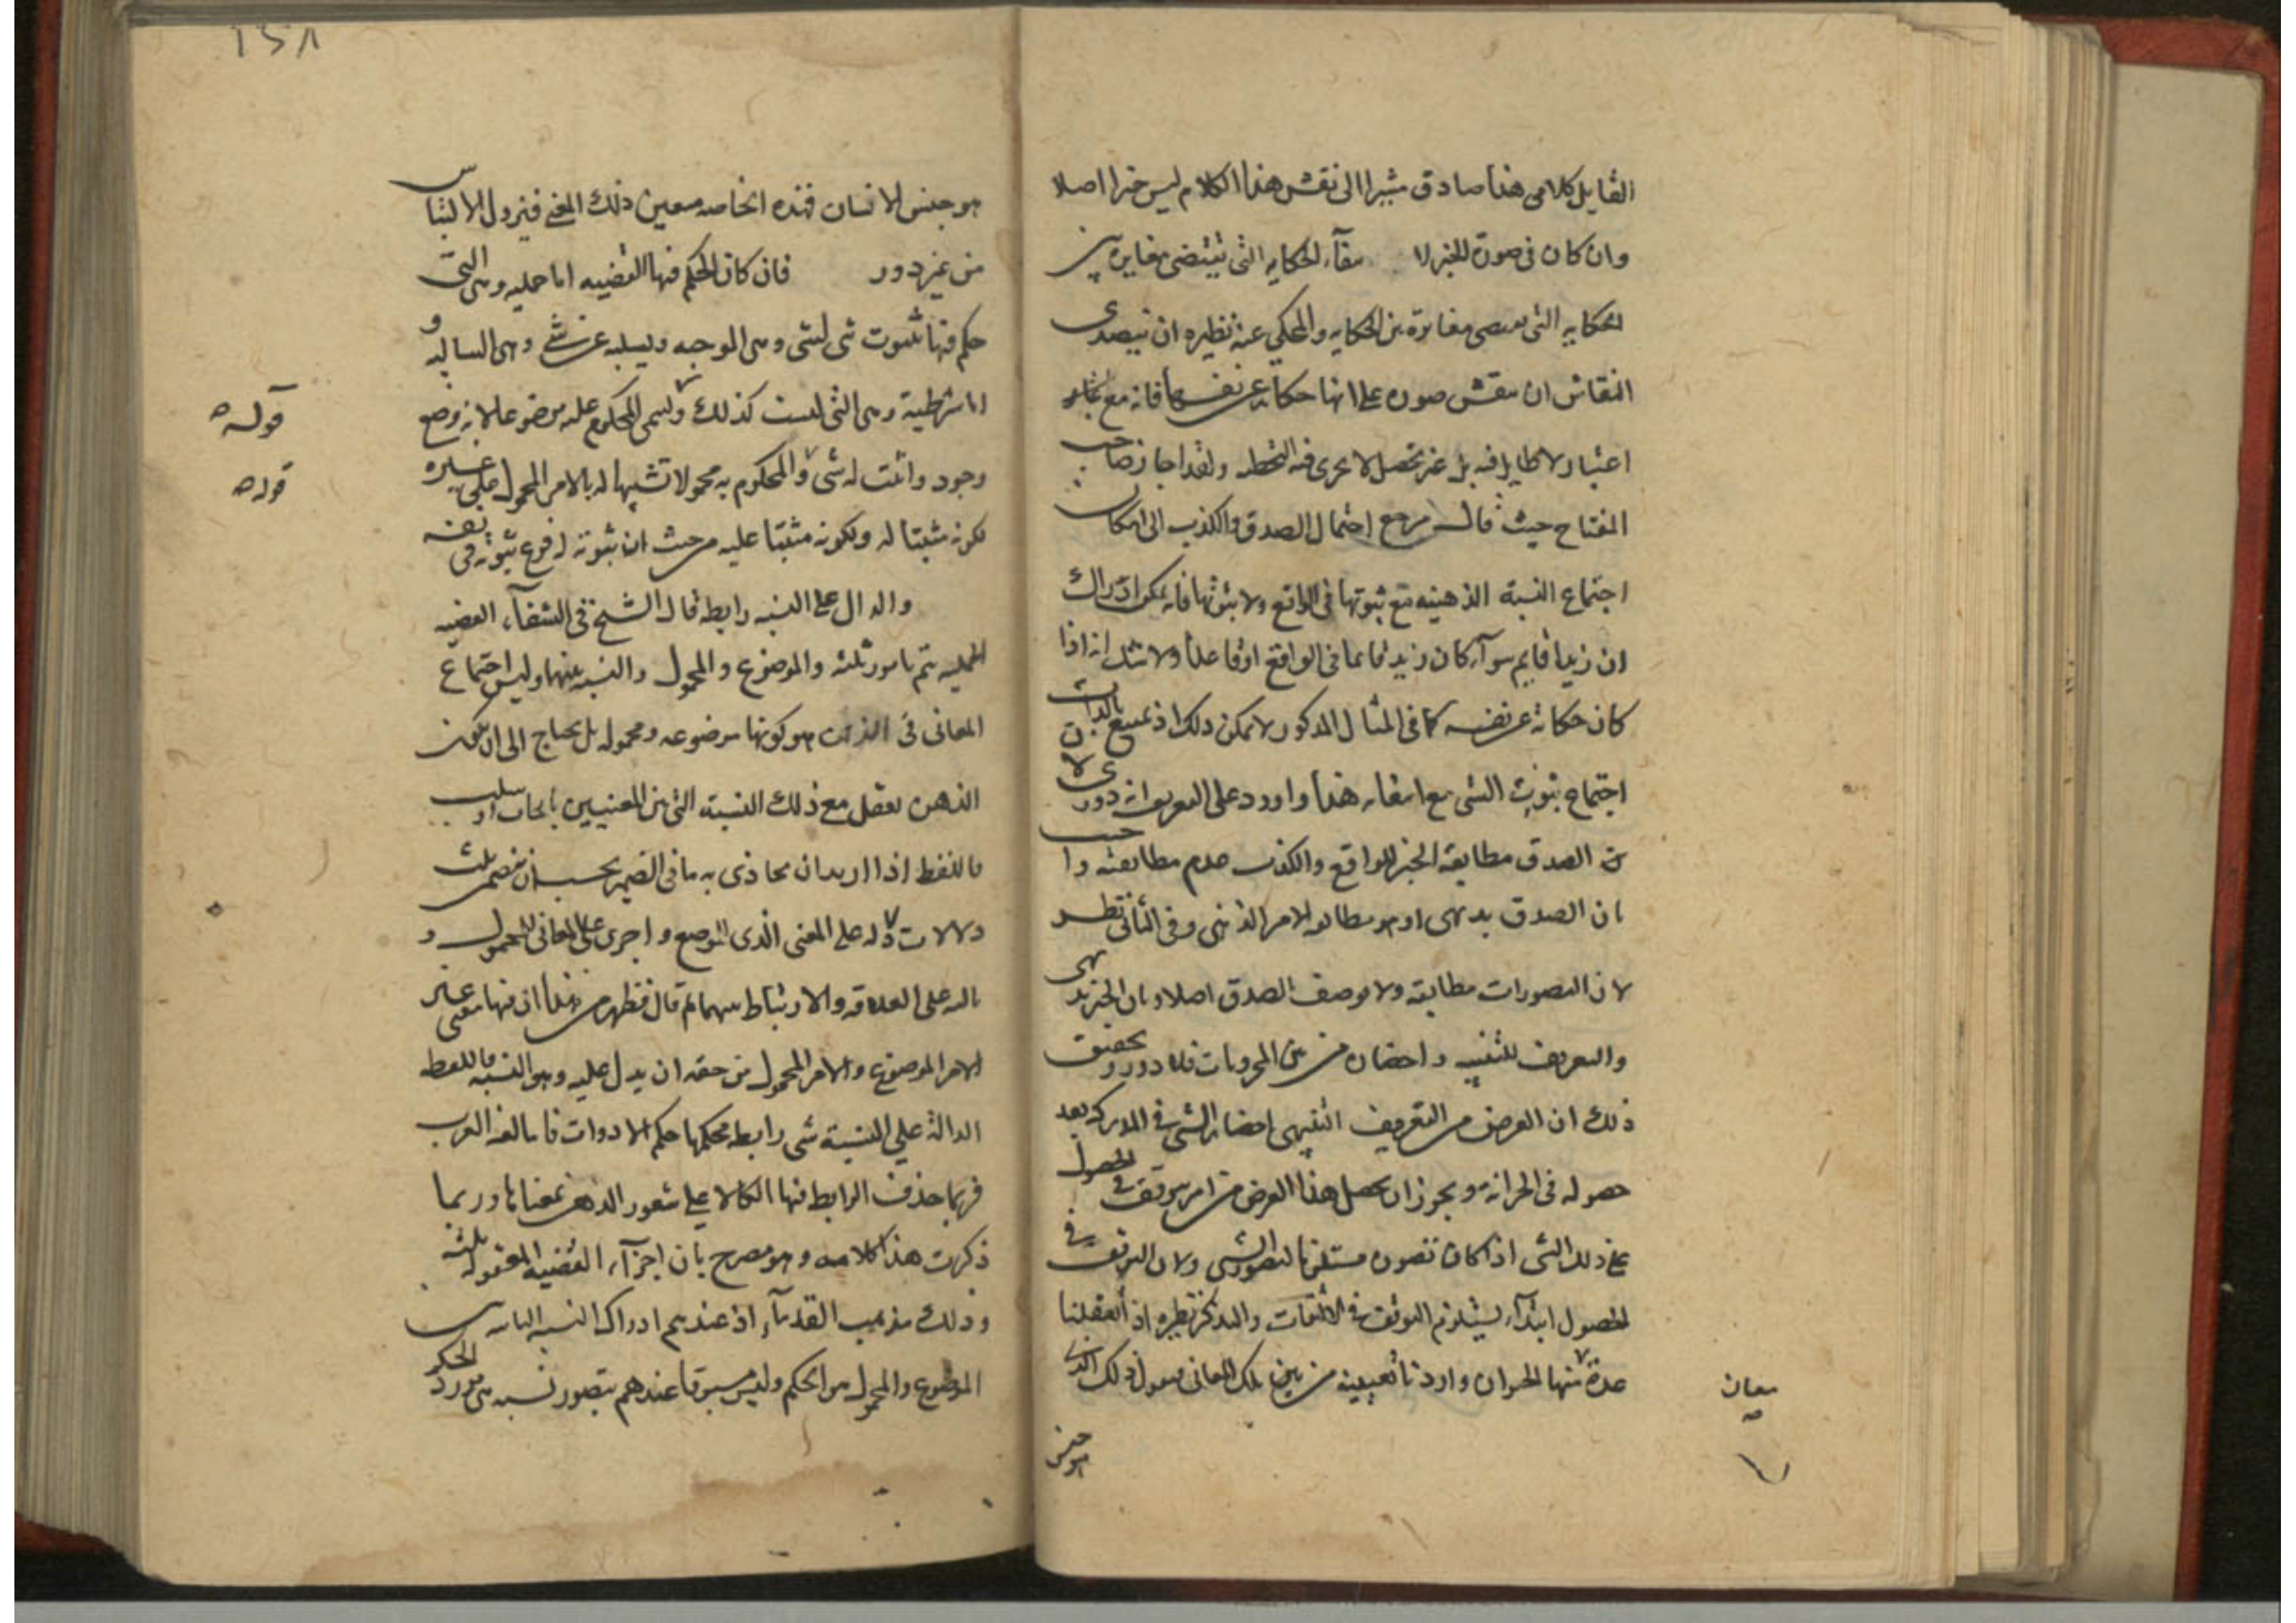 القايل كلامى هذا صادق مشيرا الى نفس هذا الكلام ليس خبرا اصلا
وان كان فى صورة الخبر لا الحكايه التى تقتضى مغايرة بين
الحكايه التى مغايرة بين الحكايه والمحكي عنه نظيره ان يتصدى
النقاش ان ينقش صورة على انها حكاية عن نفسها فانه مع
اعتبار لا طايل فيه بل غير محصل لا يجرى فيه التخطئه ولقد اجاز صاحب
المفتاح حيث قال مرجع احتمال الصدق والكذب الى امكان
اجتماع النسبة الذهنيه مع ثبوتها فى الواقع ولا ثبوتها فانه يمكن ادراك
ان زيدا قايم سوآء كان زيد قايما فى الواقع او قاعدا ولا شك انه اذا
كان حكاية عن نفسه كما فى المثال المذكور لا يمكن ذلك اذ يمتنع بالذات
اجتماع ثبوت الشى مع انتفائه هذا واورد على التعريف انه دورى لا
ن الصدق مطابقة الخبر للواقع والكذب عدم مطابقته واجيب
بان الصدق بديهى او هو مطابقه الامر الذهنى وفى الثانى نظر
لان التصورات مطابقة ولا توصف بالصدق اصلا وبان الخبر بديهى
والتعريف للتنبيه واحضاره من بين المخزونات فلا دور وتحقيق
ذلك ان الغرض من التعريف التنبيهى احضار الشى فى المدركه بعد
حصوله فى الخزانة ويجوز ان يحصل هذا الغرض من امر يتوقف فى الحصول
على ذلك الشى اذا كان تصوره مستلزما لتصور الشى ولان التوقف فى
الحصول ابتدآء لا يستلزم التوقف فى الالتفات والتذكر نظيره اذا تعقلنا
عدة منها الحيوان واردنا تعيينه من بين تلك المعانى فنقول ذلك الذى
معان
هو جنس
١٥٨
هو جنس الانسان فهذه الخاصه معين ذلك المعنى فيزول الالتباس
من غير دور فان كان الحكم فيها القضيه اما حمليه وهى التى
حكم فيها بثبوت شى لشى وهى الموجبه وبسلبه عن شى وهى السالبه و
اما شرطية وهى التى ليست كذلك ويسمى المحكوم عليه موضوعا لانه وضع
قوله
وجود واثبت له شى والمحكوم به محمولا تشبيها له بالامر المحمول على غيره
قوله
لكونه مثبتا له ولكونه مثبتا عليه من حيث ان ثبوته له فرع ثبوته فى نفسه
والدال على النسبه رابطه قال الشيخ فى الشفآء القضيه
الحمليه يتم بامور ثلثه والموضوع والمحمول والنسبه بينهما وليس اجتماع
المعانى فى الذهن هو كونها موضوعه ومحموله بل يحتاج الى ان يكون
الذهن يعقل مع ذلك النسبة التى بين المعنيين بايجاب او سلب
فاللفظ اذا اريد ان يحاذى به ما فى الضمير يجب ان يتضمن ثلث
دلالات دلاله على المعنى الذى للموضوع واخرى على المعنى للمحمول و
ثالثه على العلاقه والارتباط بينهما ثم قال فظهر من هذا ان فيها معنى غير
الامر الموضوع والامر المحمول من حقه ان يدل عليه وهو النسبه فاللفظ
الدالة على النسبة شى رابطه حكمها حكم الادوات فاما لغه العرب
فربما حذف الرابطه فيها اتكالا على شعور الذهن بمعناها وربما
ذكرت هذا كلامه وهو مصرح بان اجزآء القضيه المعقوله ثلثه
وذلك مذهب القدمآء اذ عندهم ادراك النسبه بين
الموضوع والمحمول هو الحكم وليس مسبوقا عندهم بتصور نسبه هى مورد الحكم